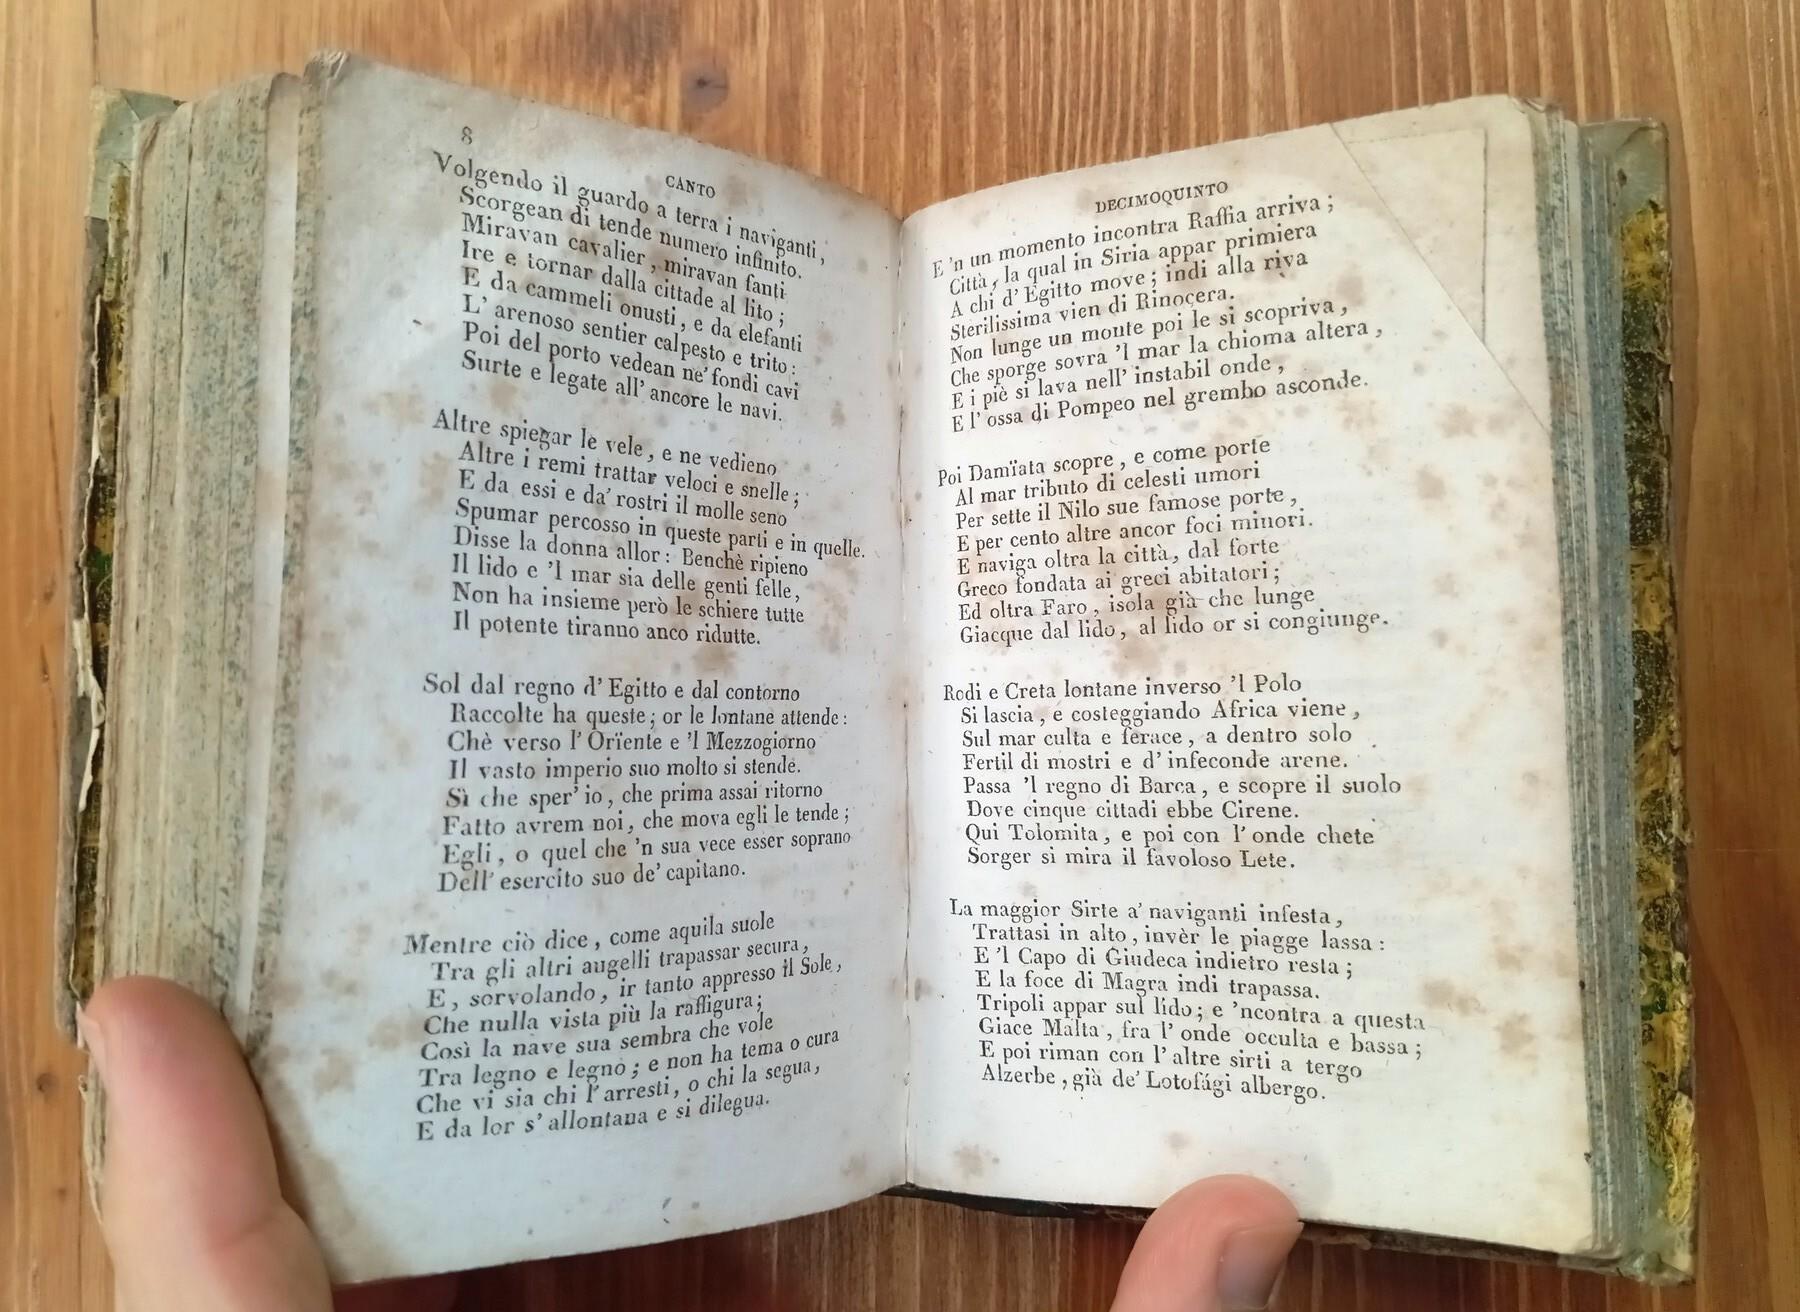 8
CANTO
Volgendo il guardo a terra i naviganti,
Scorgean di tende numero infinito.
Miravan cavalier, miravan fanti
Ire e tornar dalla cittade al lito;
E da cammeli onusti, e da elefanti
L' arenoso sentier calpesto e trito:
Poi del porto vedean ne' fondi cavi
Surte e legate all' ancore le navi.
Altre spiegar le vele, e ne vedieno
Altre i remi trattar veloci e snelle;
E da essi e da' rostri il molle seno
Spumar percosso in queste parti e in quelle.
Disse la donna allor: Benchè ripieno
Il lido e 'l mar sia delle genti felle,
Non ha insieme però le schiere tutte
Il potente tiranno anco ridutte.
Sol dal regno d' Egitto e dal contorno
Raccolte ha queste; or le lontane attende:
Chè verso l' Orïente e 'l Mezzogiorno
Il vasto imperio suo molto si stende.
Sì che sper' io, che prima assai ritorno
Fatto avrem noi, che mova egli le tende;
Egli, o quel che 'n sua vece esser soprano
Dell' esercito suo de' capitano.
Mentre ciò dice, come aquila suole
Tra gli altri augelli trapassar secura,
E, sorvolando, ir tanto appresso il Sole,
Che nulla vista più la raffigura;
Così la nave sua sembra che vole
Tra legno e legno; e non ha tema o cura
Che vi sia chi l' arresti, o chi la segua,
E da lor s' allontana e si dilegua.
DECIMOQUINTO
E 'n un momento incontra Raffia arriva;
Città, la qual in Siria appar primiera
A chi d' Egitto move; indi alla riva
Sterilissima vien di Rinocera.
Non lunge un monte poi le si scopriva,
Che sporge sovra 'l mar la chioma altera,
E i piè si lava nell' instabil onde,
E l' ossa di Pompeo nel grembo asconde.
Poi Damïata scopre, e come porte
Al mar tributo di celesti umori
Per sette il Nilo sue famose porte,
E per cento altre ancor foci minori.
E naviga oltra la città, dal forte
Greco fondata ai greci abitatori;
Ed oltra Faro, isola già che lunge
Giacque dal lido, al lido or si congiunge.
Rodi e Creta lontane inverso 'l Polo
Si lascia, e costeggiando Africa viene,
Sul mar culta e ferace, a dentro solo
Fertil di mostri e d' infeconde arene.
Passa 'l regno di Barca, e scopre il suolo
Dove cinque cittadi ebbe Cirene.
Qui Tolomita, e poi con l' onde chete
Sorger si mira il favoloso Lete.
La maggior Sirte a' naviganti infesta,
Trattasi in alto, invèr le piagge lassa:
E 'l Capo di Giudeca indietro resta;
E la foce di Magra indi trapassa.
Tripoli appar sul lido; e 'ncontra a questa
Giace Malta, fra l' onde occulta e bassa;
E poi riman con l' altre sirti a tergo
Alzerbe, già de' Lotofági albergo.